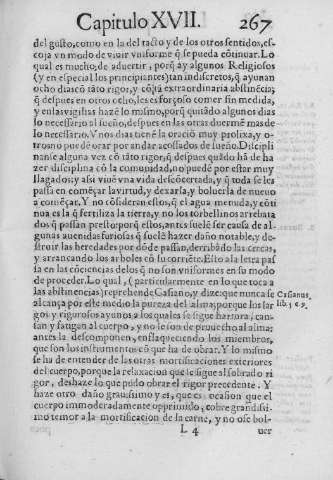 Capitulo XVII. 267
del gusto, como en la del tacto y de los otros sentidos, es-
coja vn modo de viuir vniforme q̃ se pueda cõtinuar. Lo
qual es mucho; de aduertir, porq̃ ay algunos Religiosos
(y en especial los principiantes) tan indiscretos, q̃ ayunan
ocho dias cõ tãto rigor, y cõ tãta extraordinaria abstinẽcia;
q̃ despues en otros ocho, les es forçoso comer sin medida,
y en las vigilias hazẽ lo mismo, porq̃ quitãdo algunos dias
lo necessario al sueño, despues en las otras duermẽ mas de
lo necessario. Vnos dias tienẽ la oraciõ muy prolixa, y o-
tros no puedẽ orar por andar acossados de sueño. Discipli
nanse alguna vez cõ tãto rigor, q̃ despues quãdo hã de ha
zer disciplina cõ la comunidad, no puedẽ por estar muy
llagados: y assi viuẽ vna vida descõcertada, y q̃ toda se les
passa en comẽçar la virtud, y dexarla, y boluerla de nueuo
a comẽçar. Y no cõsideran estos, q̃ el agua menuda, y cõti
nua es la q̃ fertiliza la tierra, y no los torbellinos arrebata
dos q̃ passan presto: porq̃ estos, antes suele ser causa de al-
gunas auenidas furiosas q̃ suelẽ hazer daño notable, y de-
struir las heredades por dõde passan, derribãdo las cercas,
y arrancando los arboles cõ su corriẽte. Esto a la letra pas
sa en las cõciencias de los q̃ no son vniformes en su modo
de proceder. Lo qual, (particularmente en lo que toca a
las abstinencias) reprehende Casiano, y dize: que nunca se
alcança por este medio la pureza del alma; porque los lar
gos y rigurosos ayunos a los quales se sigue hartura, can-
san y fatigan al cuerpo, y no le son de prouecho al alma:
antes la descomponen, enflaqueciendo los miembros,
que son los instrumentos cõ que ha de obrar. Y lo mismo
se ha de entender de las otras mortificaciones exteriores
del cuerpo, porque la relaxacion que le sigue al sobrado ri
gor, deshaze lo que pudo obrar el rigor precedente. Y
haze otro daño grauissimo y es, que es ocasion que el
cuerpo immoderadamente opprimido, cobre grandissi-
mo temor a la mortificacion de la carne, y no ose bol-
L 4 uer
Casianus
lib.